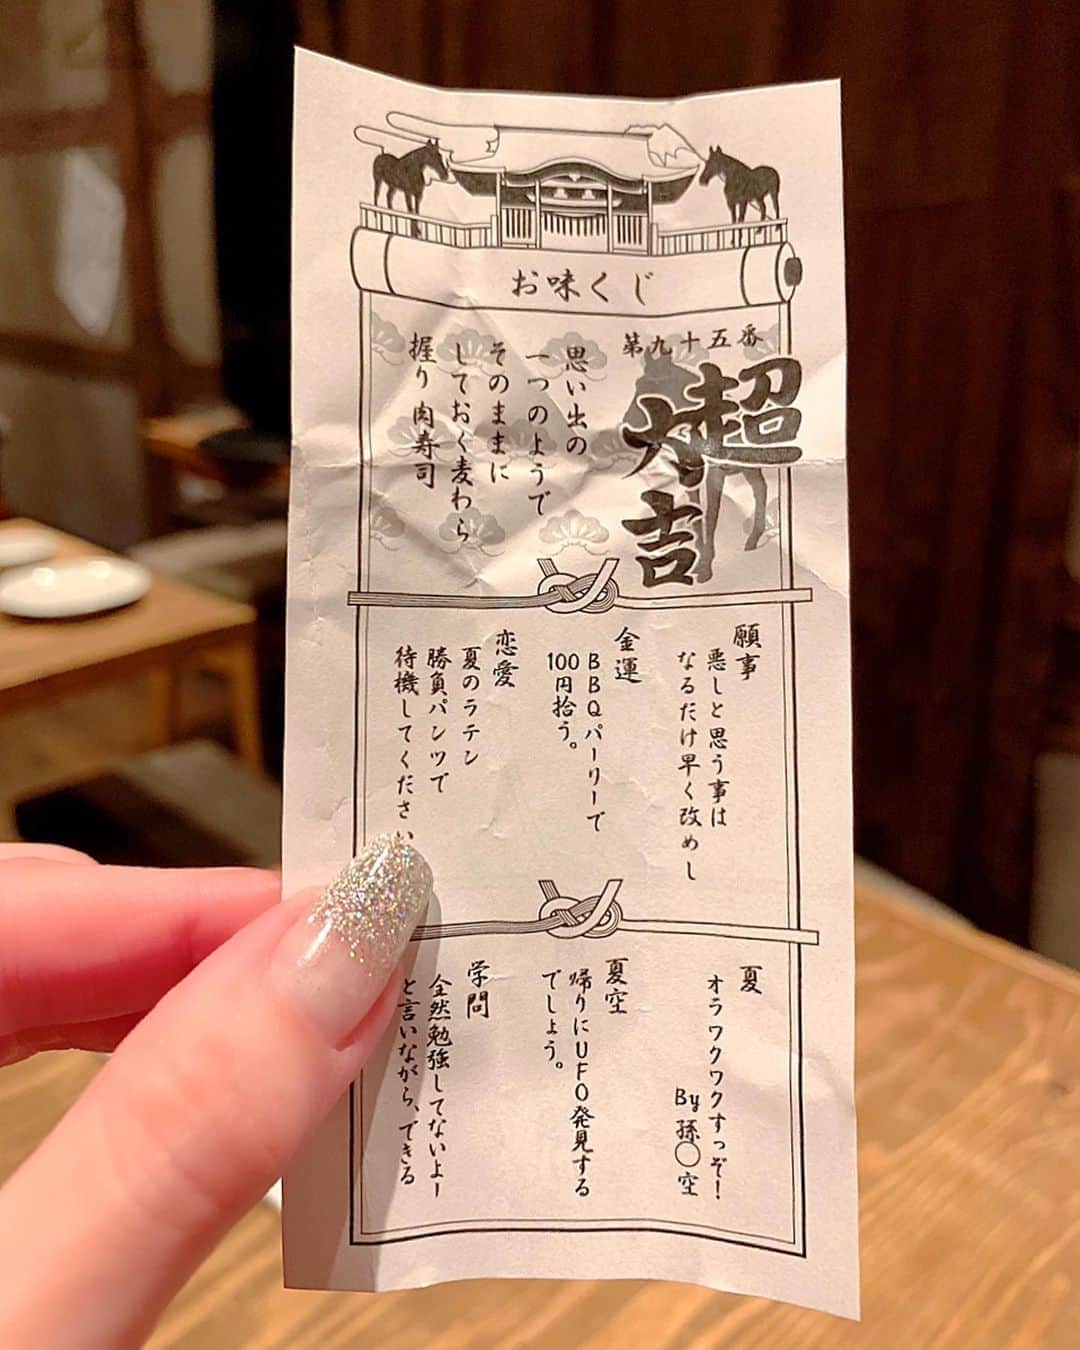 お味くじ
第九十五番
超大吉
思い出の
一つのようで
そのままに
しておく麦わら
握り 肉寿司
願事
悪しと思う事は
なるだけ早く改めし
金運
BBQパーリーで
100円拾う。
恋愛
夏のラテン
勝負パンツで
待機してください
夏
オラワクワクすっぞ！
By 孫〇空
夏空
帰りにUFO発見する
でしょう。
学問
全然勉強してないよー
と言いながら、できる